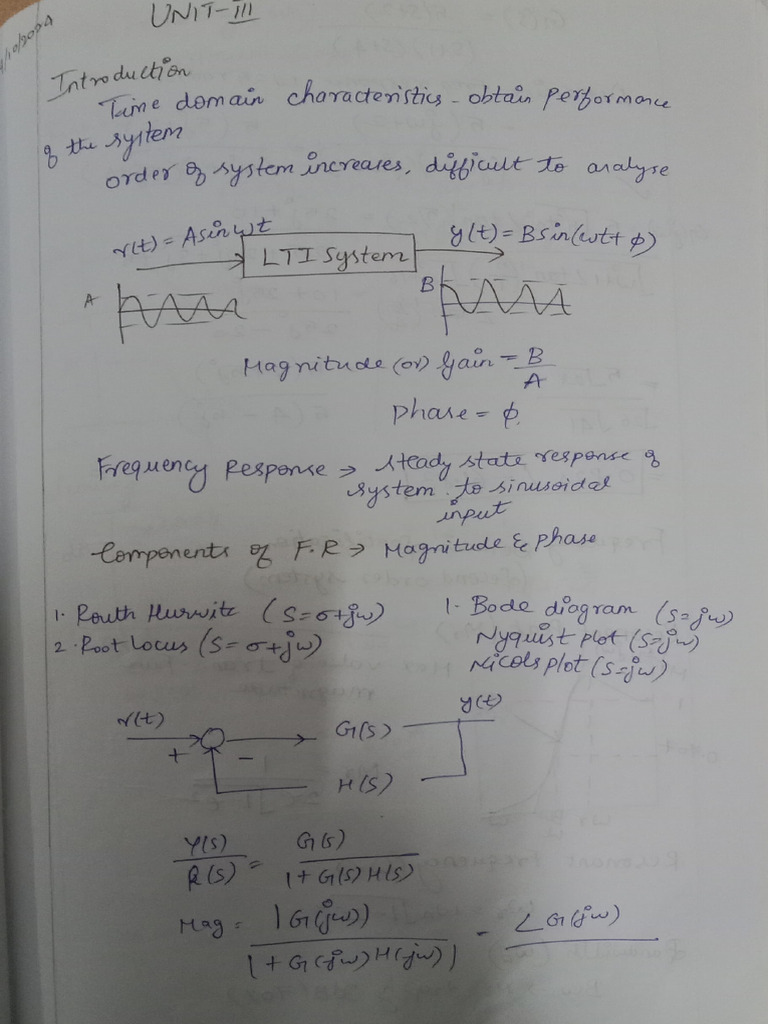 UNIT-III
Introduction
Time domain characteristics - obtain performance
of the system
order of system increases, difficult to analyse
r(t) = A sin ωt
LTI System
y(t) = B sin(ωt + φ)
A
B
Magnitude (or) Gain = B/A
Phase = φ
Frequency Response → Steady state response of
system to sinusoidal
input
Components of F.R → Magnitude & phase
1. Routh Hurwitz (S = σ+jω)
2. Root locus (S = σ+jω)
1. Bode diagram (S=jω)
Nyquist plot (S=jω)
Nicols plot (S=jω)
r(t)
+
-
G(S)
y(t)
H(S)
Y(S)/R(S) = G(S)/1+G(S)H(S)
Mag = |G(jω)|/|1+G(jω)H(jω)| - ∠G(jω)